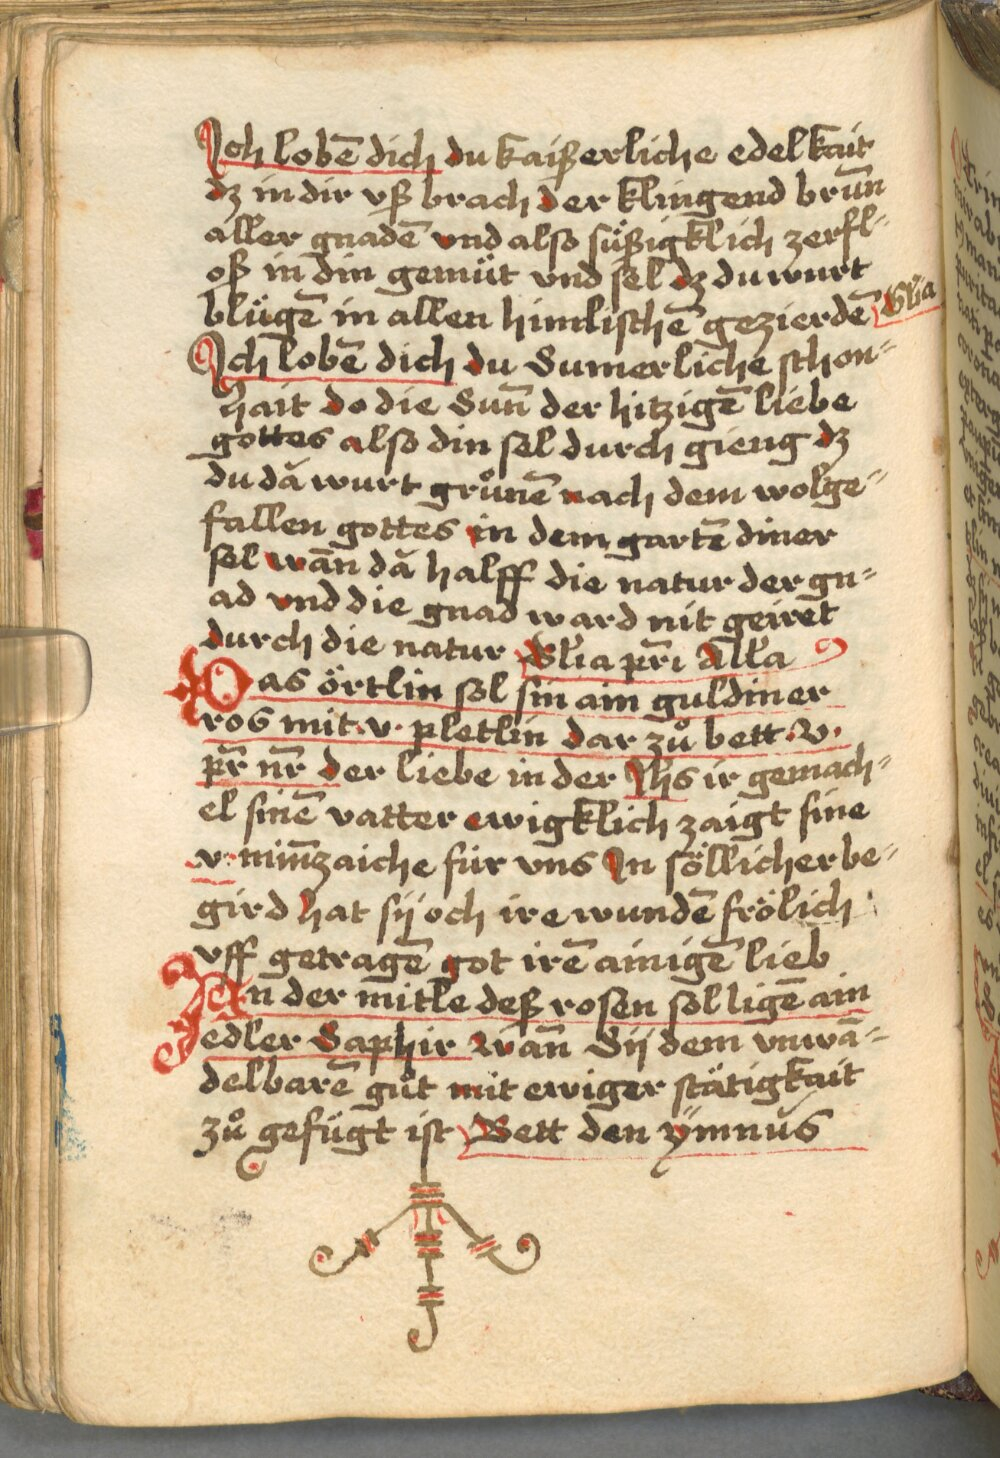 Ich lobē dich du kaißerliche edelkait
dz in dir vß brach der klingend brūn
aller gnadē vnd also süßigklich zerfl-
oß in din gemüt vnd sel dz du wurt
blügē in allen himlischē gezierdē Glīa
Ich lobē dich du Sumerliche schon-
hait do die Sun̄ der hitzigē liebe
gottes also din sel durch gieng dz
du dā wurt grůnē nach dem wolge-
fallen gottes in dem gartē diner
sel wān dā halff die natur der gn-
ad vnd die gnad ward nit geiret
durch die natur Glīa pr̄i Alla
Das örtlin sol sin ain guldiner
ros mit .v. pletlin dar zů bett .v.
pr̄ nr̄ der liebe in der Jhs ir gemach-
el sinē vatter ewigklich zaigt sine
.v. min̄zaiche für vns In söllicher be-
gird hat sij och ire wundē frölich
vff getragē got irē ainigē lieb
In der mitle deß rosen sol ligē ain
edler Saphir Wān Sij dem vnwā-
delbarē gůt mit ewiger stätigkait
zů gefügt ist Bett den ÿmnus